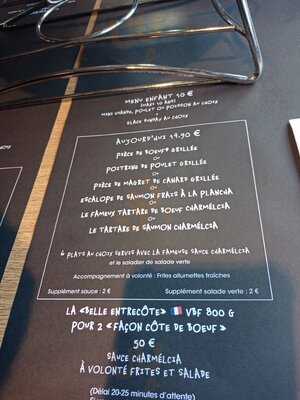 MENU ENFANT 10 €
GLACE PUSHUP AU CHOIX
AUJOURD'HUI 19.90 €
PIÈCE DE BOEUF GRILLÉE
ou
POITRINE DE POULET GRILLÉE
ou
PIÈCE DE MAGRET DE CANARD GRILLÉE
ou
ESCALOPE DE SAUMON FRAIS À LA PLANCHA
ou
LE FAMEUX TARTARE DE BOEUF CHARMÉLCIA
ou
LE TARTARE DE SAUMON CHARMÉLCIA
6 PLATS AU CHOIX SERVIS AVEC LA FAMEUSE SAUCE CHARMÉLCIA
et le saladier de salade verte
Accompagnement à volonté : Frites allumettes fraîches
Supplément sauce : 2 € Supplément salade verte : 2 €
LA «BELLE ENTRECÔTE» VBF 800 G
POUR 2 «FAÇON CÔTE DE BOEUF»
50 €
SAUCE CHARMÉLCIA
À VOLONTÉ FRITES ET SALADE
(Délai 20-25 minutes d'attente)